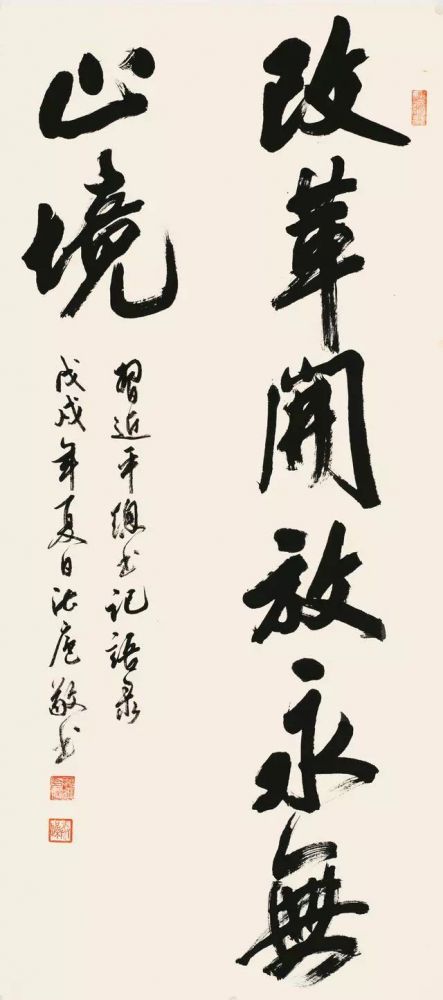 改革開放永無
止境
習近平總书記語录
戊戌年夏日敬书